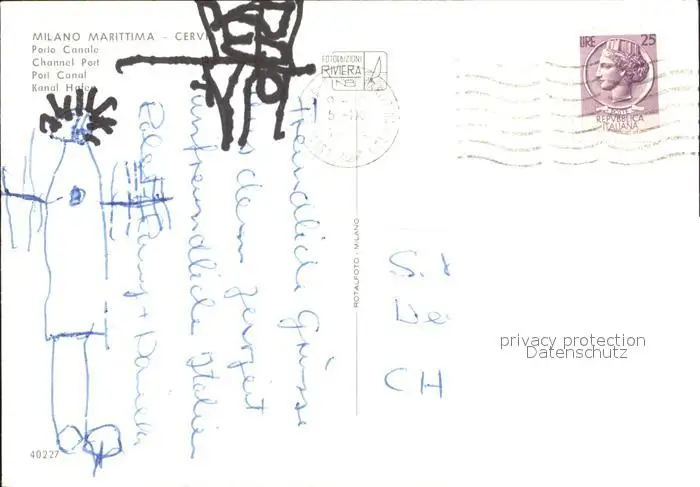 MILANO MARITTIMA - CERVI
Porto Canale
Channel Port
Port Canal
Kanal Hafen
FOTOEDIZIONI
RIVIERA
LIRE 25
POSTE
REPVBBLICA
ITALIANA
Freundliche Grüsse
aus dem zerzeit
unfreundliche Italien
ROTALFOTO - MILANO
S.
De
CH
privacy protection
Datenschutz
40227